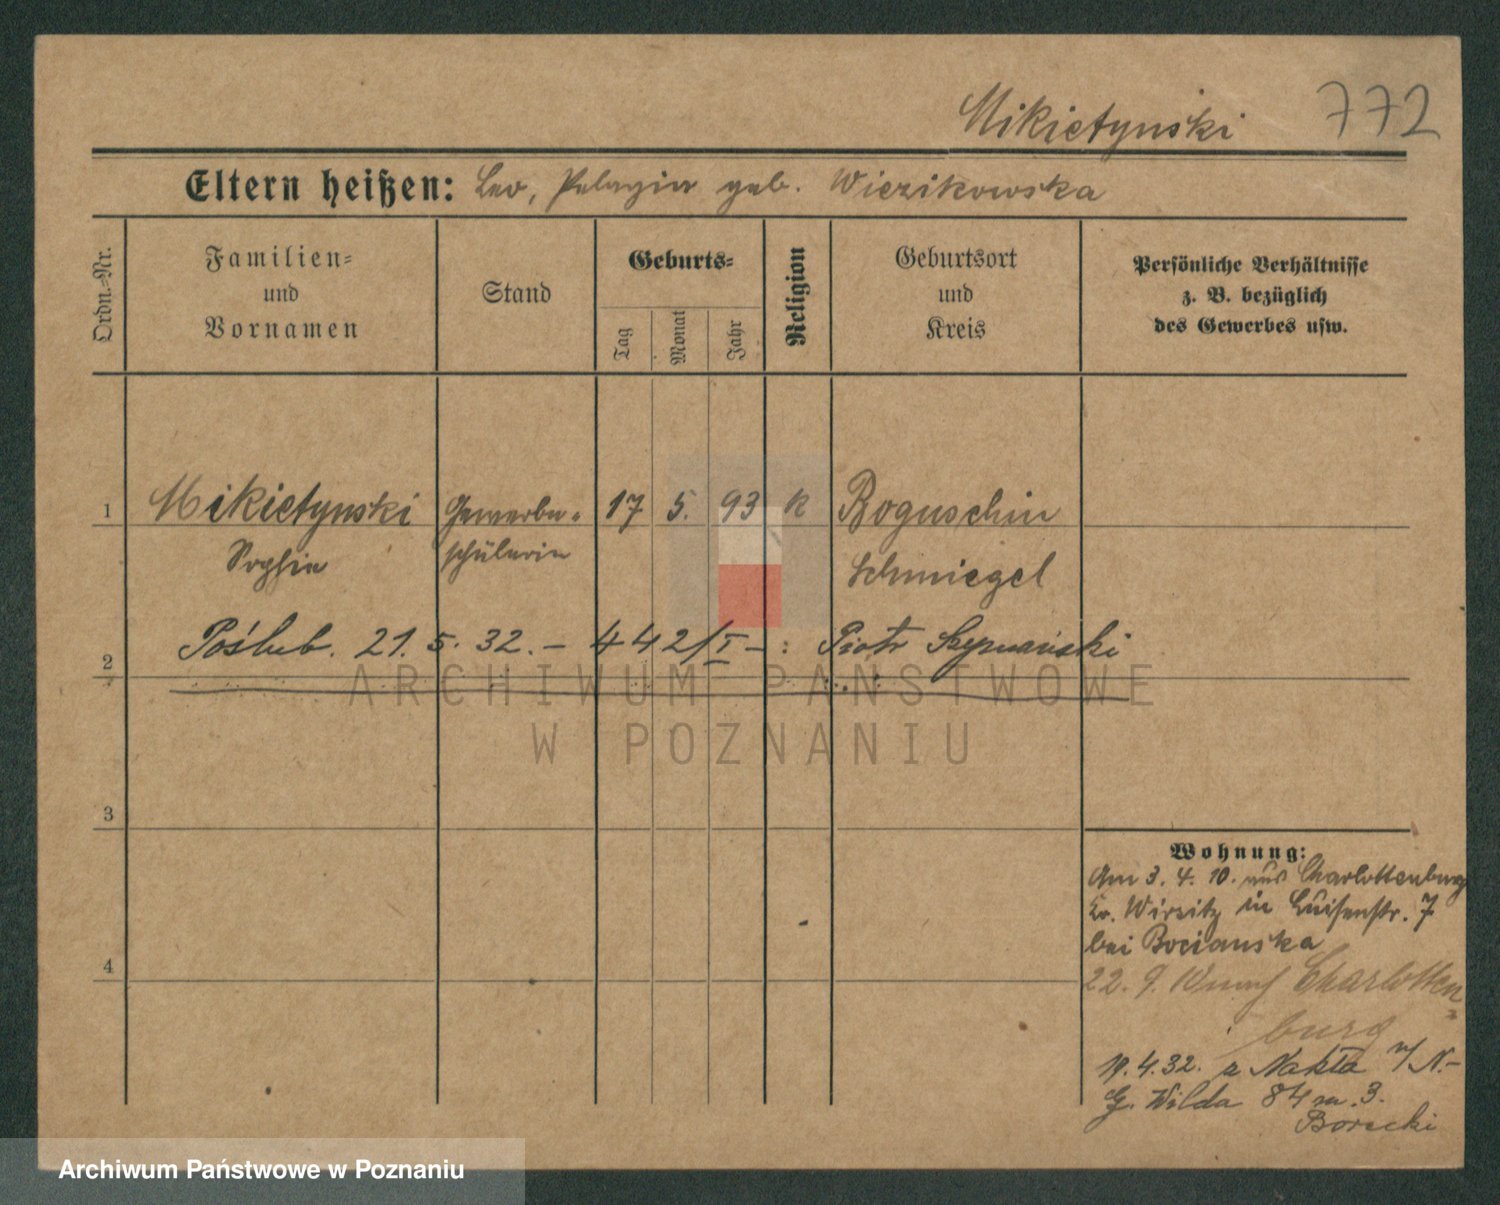 Mikietynski 772
Eltern heißen: Leo, Pelagia geb. Wiezikowska
Ordn.-Nr.
Familien-
und
Vornamen
Stand
Geburts-
Tag
Monat
Jahr
Religion
Geburtsort
und
Kreis
Persönliche Verhältnisse
z. B. bezüglich
des Gewerbes usw.
1 Mikietynski Gewerbe- 17 5. 93 k Boguschin
Sophie schülerin Schmiegel
2 Poślub. 21. 5. 32. – 442/I – : Piotr Szymański
3
4
Wohnung:
Am 3. 4. 10. aus Charlottenburg
Kr. Wirsitz in Luisenstr. 7
bei Bocianska
22. 9. 10 nach Charlotten-
burg
19. 4. 32. z Nakła n/N.-
G. Wilda 84 m. 3.
Borecki
ARCHIWUM PAŃSTWOWE
W POZNANIU
Archiwum Państwowe w Poznaniu